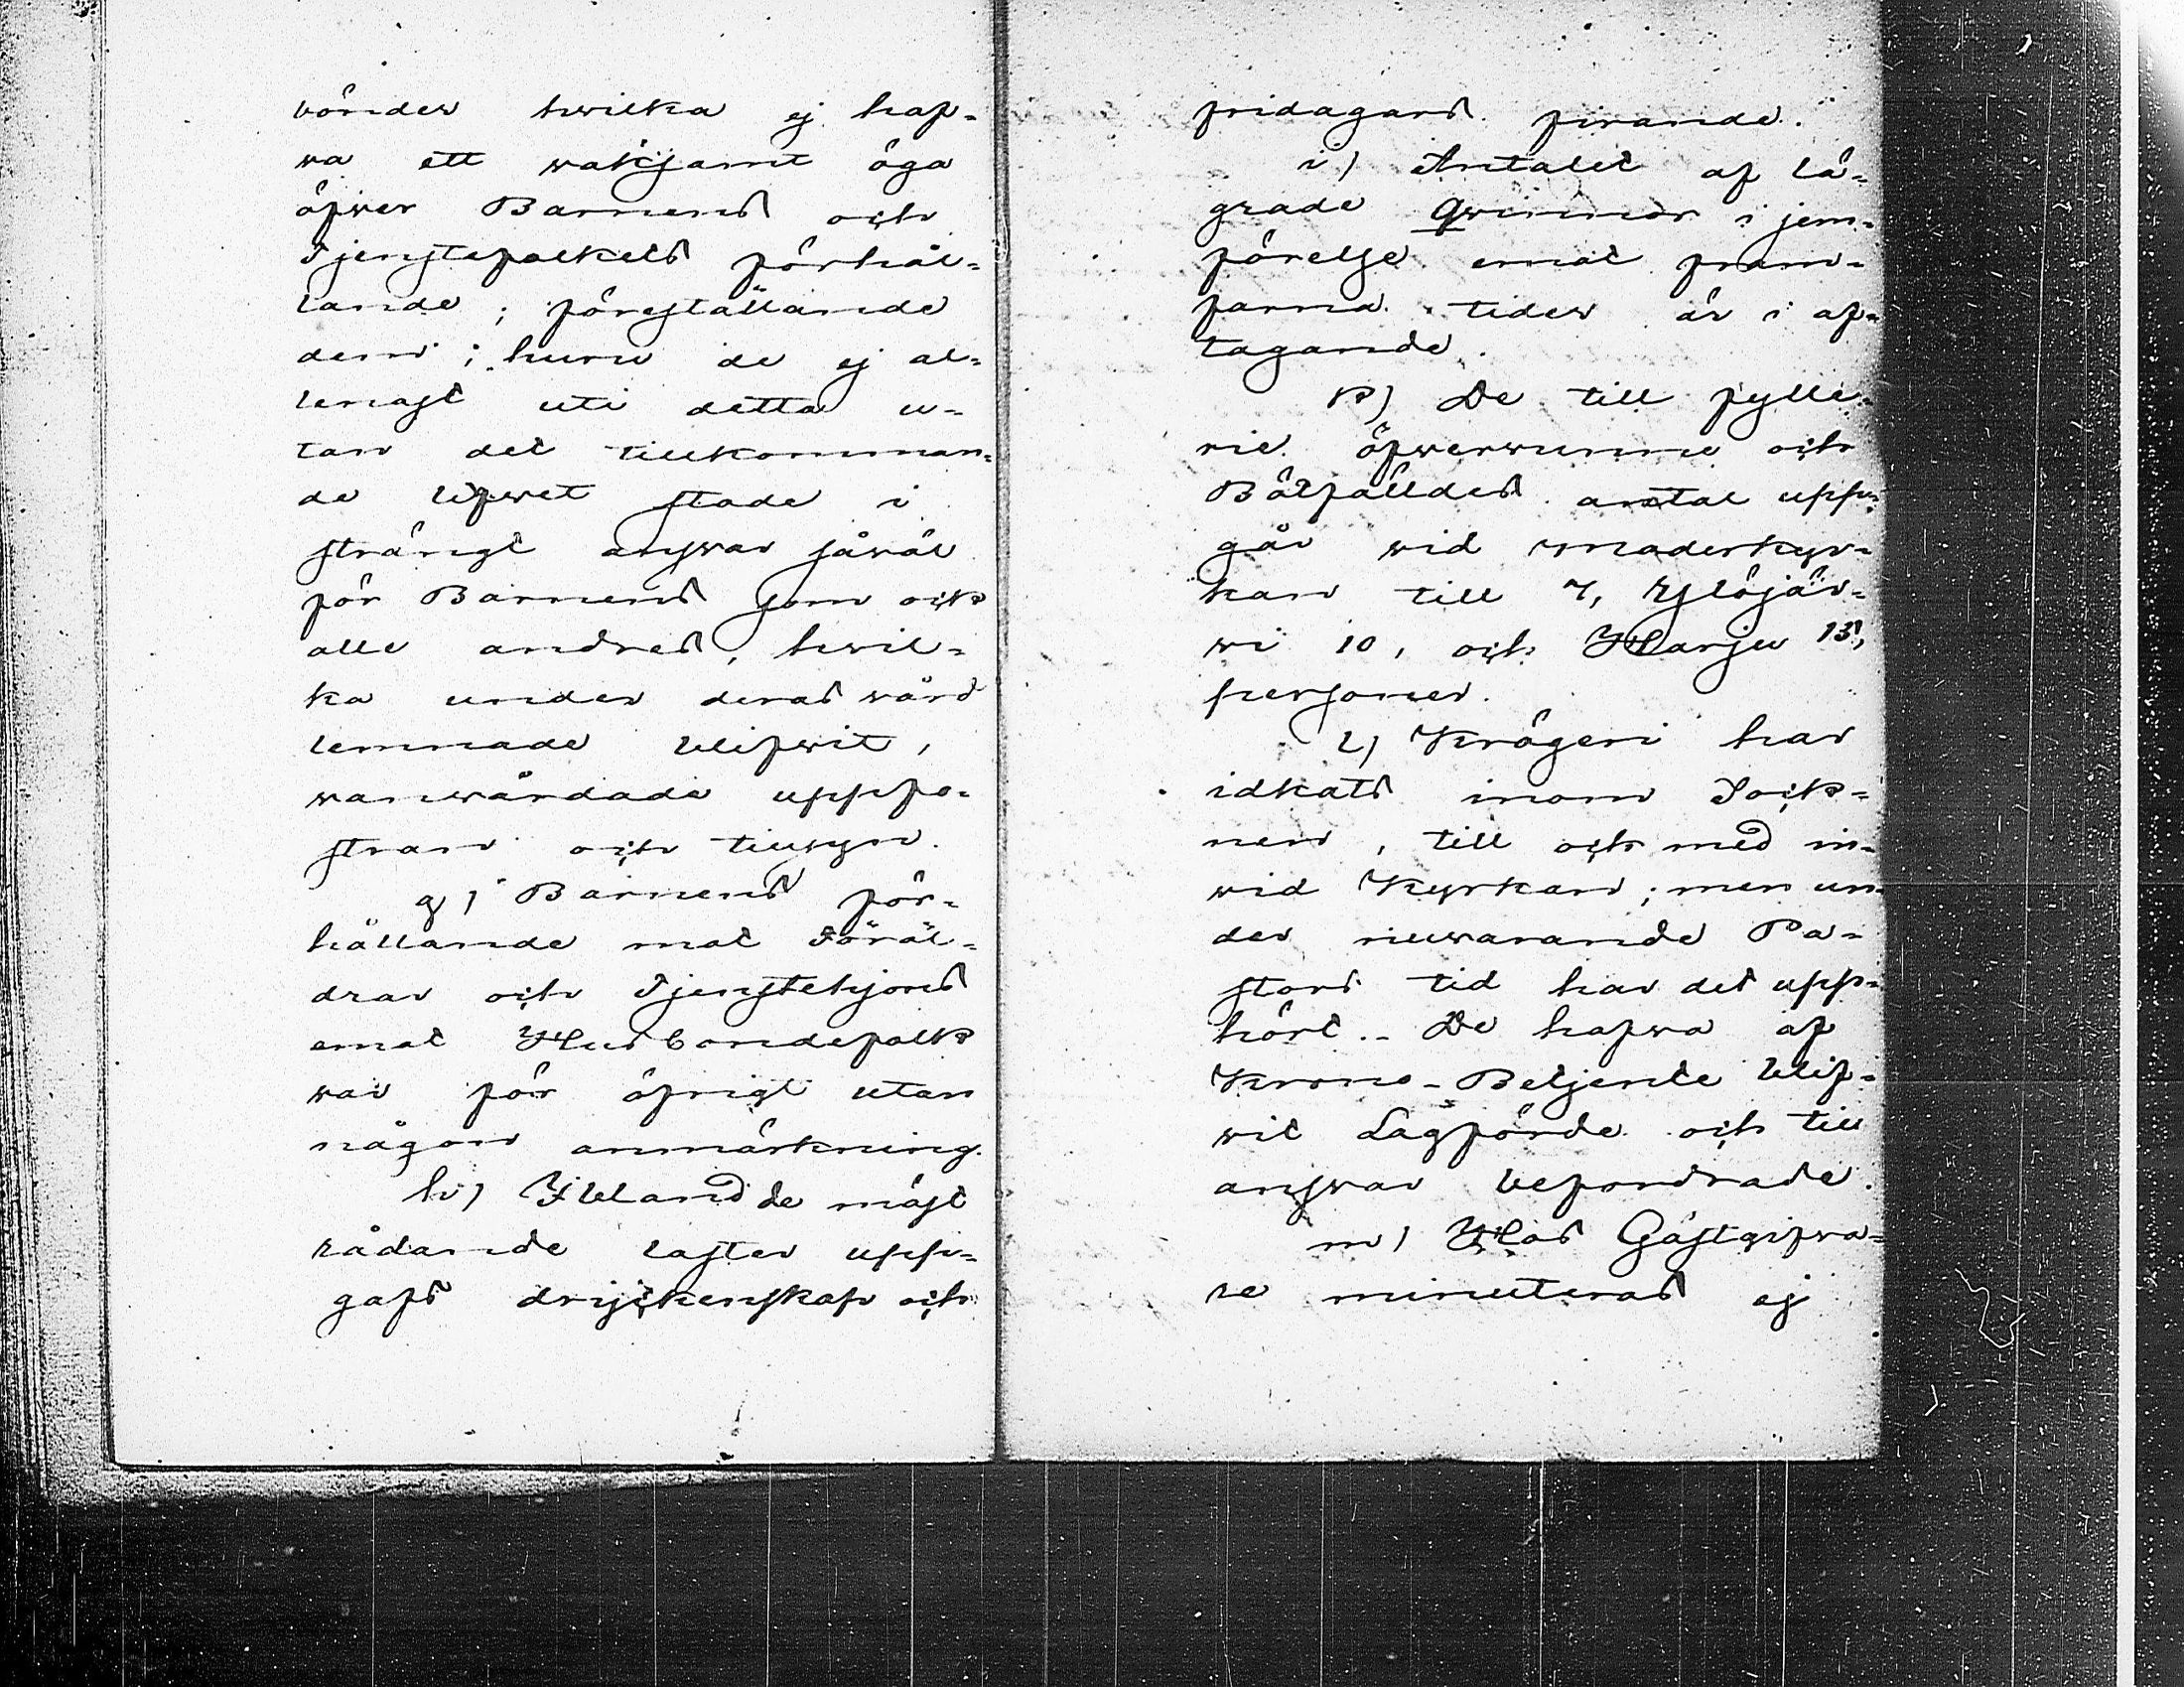 bönder hwilka ej haf-
wa ett waksamt öga
öfwer Barnens och
Tjenstefolkets förhål-
lande; föreställande
dem; huru de ej al-
lenast uti detta u-
tan det tillkomman-
de lifwet stade i
strängt answar såwäl
för Barnens som ock
alle andres, hwil-
ka under deras wård
lemnade blifwit,
wanwårdade uppfo-
stran och tillsyn.
g) Barnens för-
hållande mot Föräl-
drar och Tjenstehjons
emot Husbondefolk
war för öfrigt utan
någon anmärkning.
h) Ibland de mäst
rådande laster upp-
gafs dryckenskap och
fridagars firande.
i) Antalet af lä-
grade Qwinnor i jem-
förelse emot fram-
farna tider är i af-
tagande.
k) De till fylle-
rie öfwerwunne och
Bötfälldes antal upp-
går wid moderkyr-
kan till 7, Ylöjär-
wi 10, och Harju 13,
personer.
l) Krögeri har
idkats inom Sock-
nen, till och med in-
wid Kyrkan; men un-
der nuwarande Pa-
stors tid har det upp-
hört. - De hafwa af
Krono-Betjente blif-
wit Lagförde och till
answar befordrade.
m) Hos Gästgifwa-
re minuteras ej